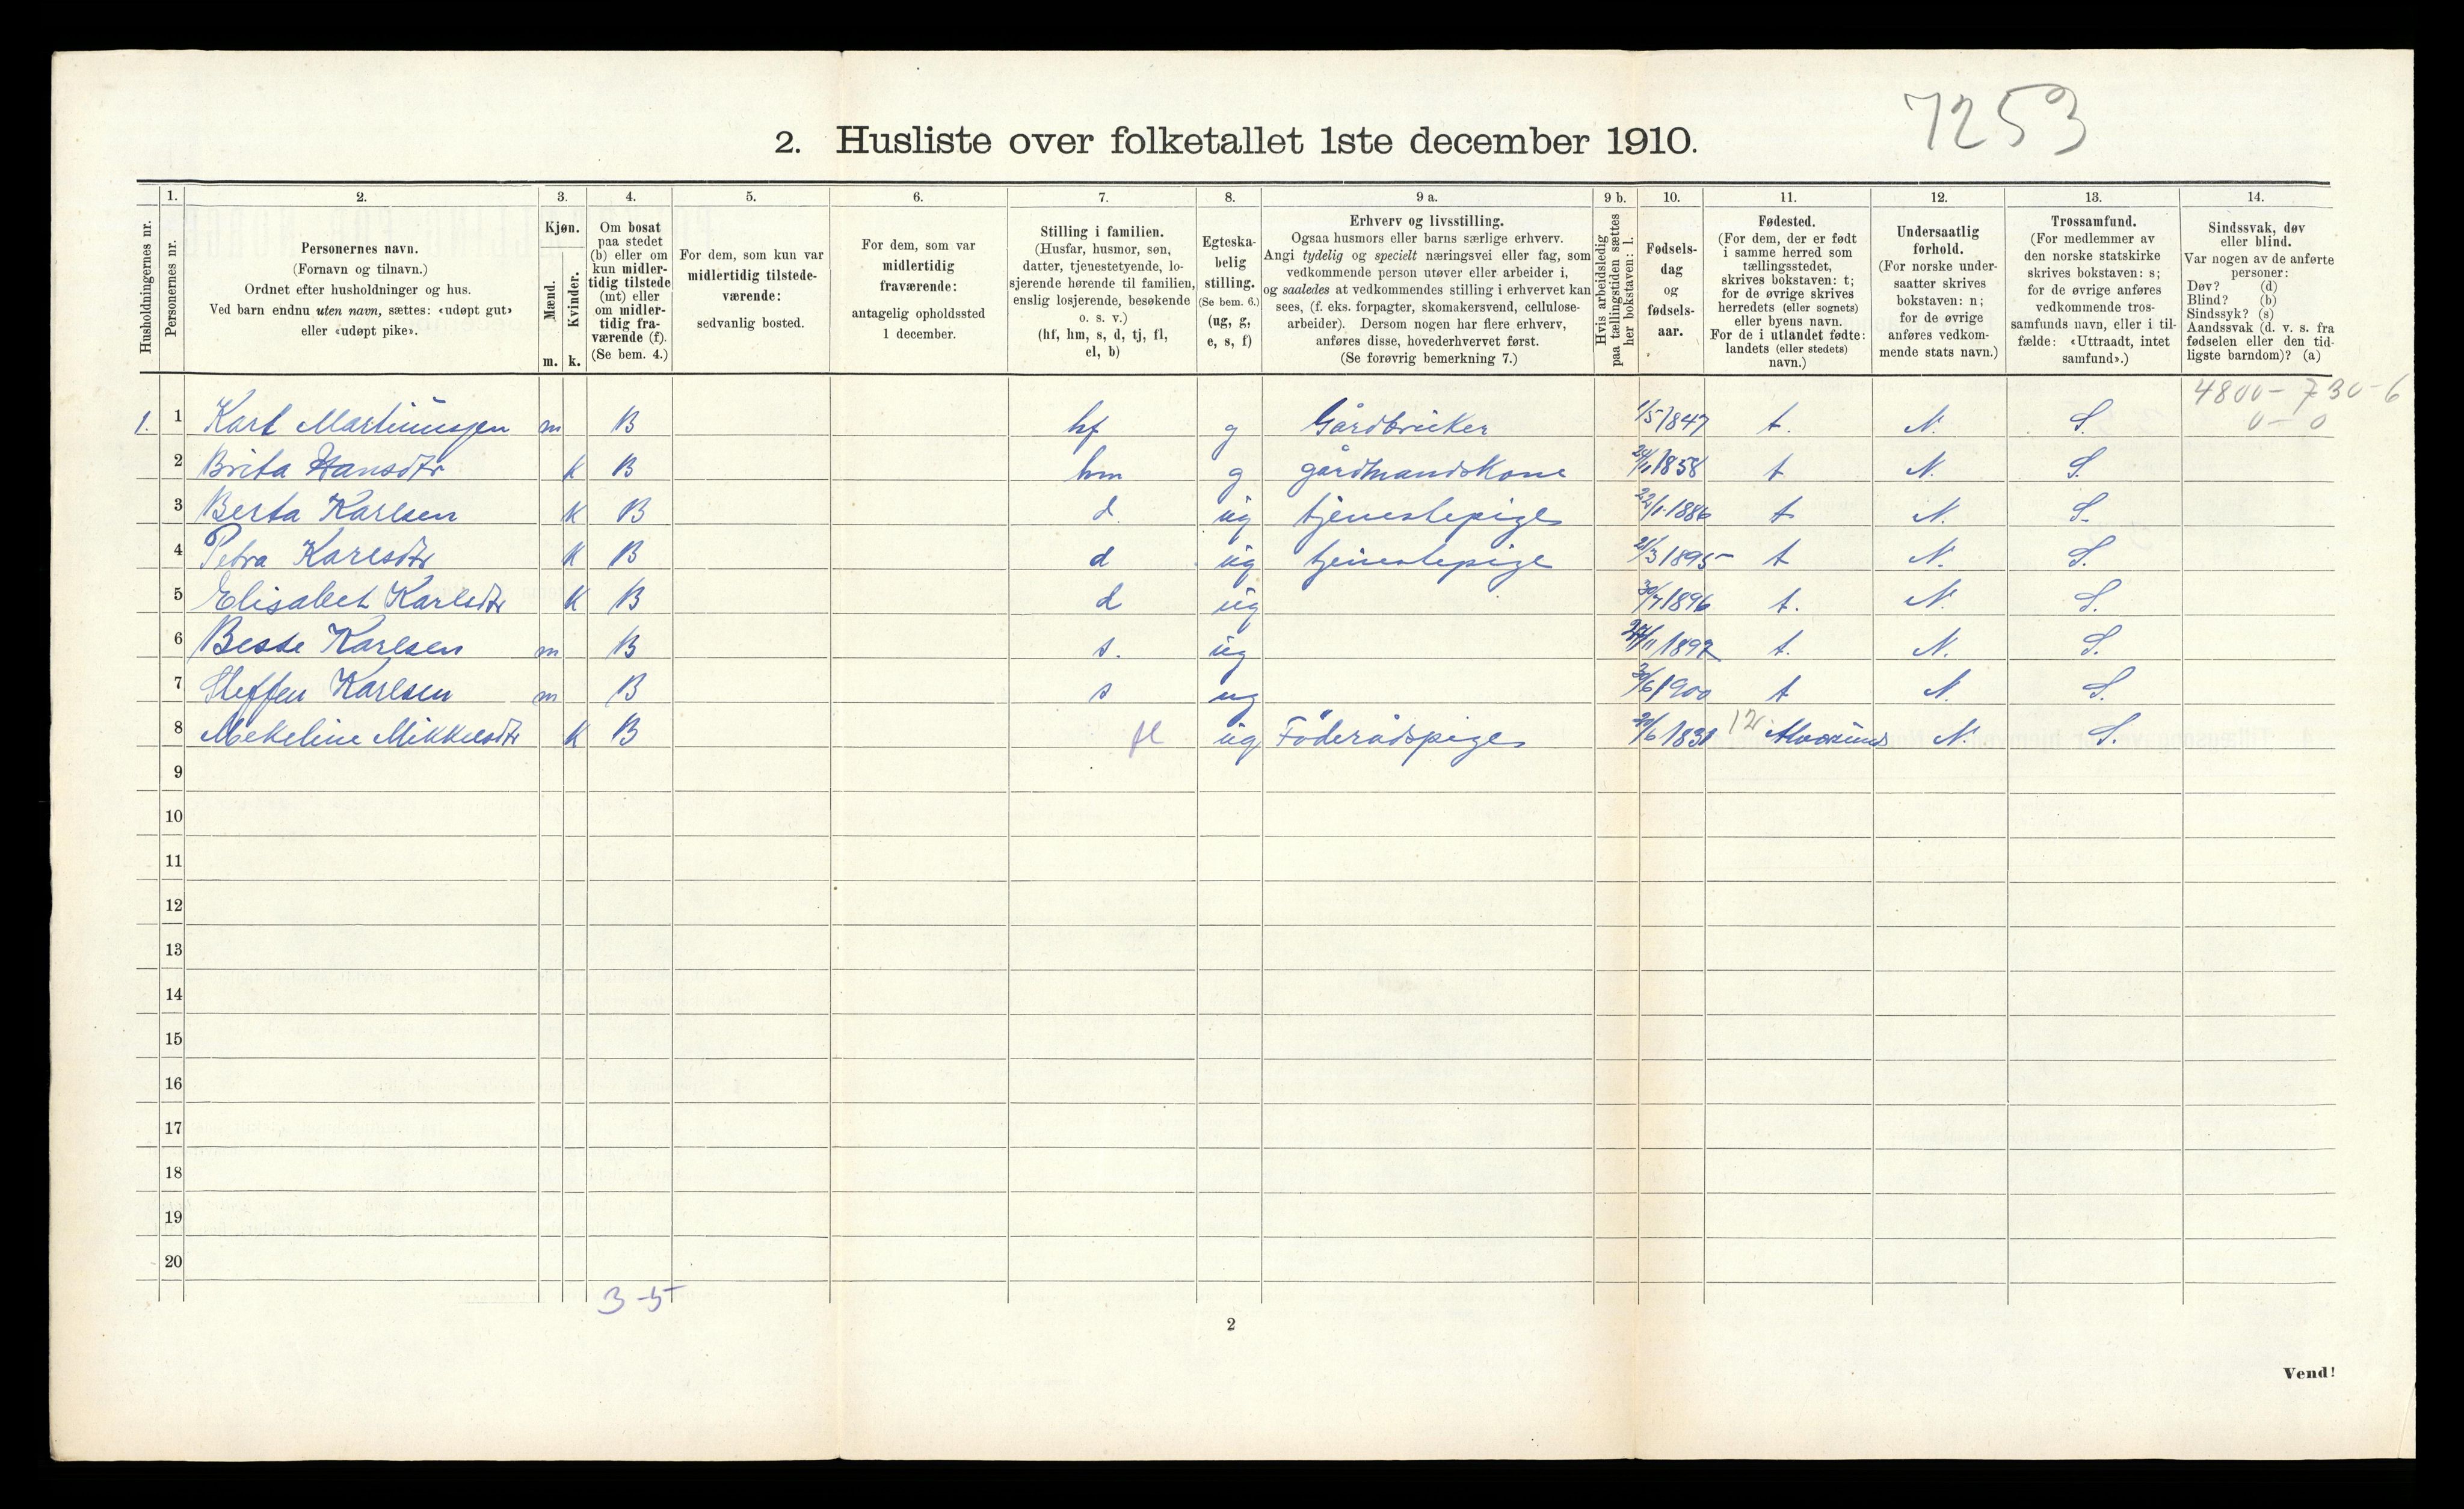 7253
2. Husliste over folketallet 1ste december 1910.
Husholdningernes nr.
1.
Personernes nr.
2.
Personernes navn.
(Fornavn og tilnavn.)
Ordnet efter husholdninger og hus.
Ved barn endnu uten navn, sættes: «udøpt gut»
eller «udøpt pike».
3.
Kjøn.
Mænd.
m.
Kvinder.
k.
4.
Om bosat
paa stedet
(b) eller om
kun midler-
tidig tilstede
(mt) eller
om midler-
tidig fra-
værende (f).
(Se bem. 4.)
5.
For dem, som kun var
midlertidig tilstede-
værende:
sedvanlig bosted.
6.
For dem, som var
midlertidig
fraværende:
antagelig opholdssted
1 december.
7.
Stilling i familien.
(Husfar, husmor, søn,
datter, tjenestetyende, lo-
sjerende hørende til familien,
enslig losjerende, besøkende
o. s. v.)
(hf, hm, s, d, tj, fl,
el, b)
8.
Egteska-
belig
stilling.
(Se bem. 6.)
(ug, g,
e, s, f)
9 a.
Erhverv og livsstilling.
Ogsaa husmors eller barns særlige erhverv.
Angi tydelig og specielt næringsvei eller fag, som
vedkommende person utøver eller arbeider i,
og saaledes at vedkommendes stilling i erhvervet kan
sees, (f. eks. forpagter, skomakersvend, cellulose-
arbeider). Dersom nogen har flere erhverv,
anføres disse, hovederhvervet først.
(Se forøvrig bemerkning 7.)
9 b.
Hvis arbeidsledig
paa tællingstiden sættes
her bokstaven: l.
10.
Fødsels-
dag
og
fødsels-
aar.
11.
Fødested.
(For dem, der er født
i samme herred som
tællingsstedet,
skrives bokstaven: t;
for de øvrige skrives
herredets (eller sognets)
eller byens navn.
For de i utlandet fødte:
landets (eller stedets)
navn.)
12.
Undersaatlig
forhold.
(For norske under-
saatter skrives
bokstaven: n;
for de øvrige
anføres vedkom-
mende stats navn.)
13.
Trossamfund.
(For medlemmer av
den norske statskirke
skrives bokstaven: s;
for de øvrige anføres
vedkommende tros-
samfunds navn, eller i til-
fælde: «Uttraadt, intet
samfund».)
14.
Sindssvak, døv
eller blind.
Var nogen av de anførte
personer:
Døv? (d)
Blind? (b)
Sindssyk? (s)
Aandssvak (d. v. s. fra
fødselen eller den tid-
ligste barndom)? (a)
4800 - 730 - 6
0 - 0
1. 1 Karl Martinussen m B hf g Gårdbruker 1/5 1847 t. N. S.
2 Brita Hansdtr k B hm g gårdmandskone 1858 t N. S.
3 Berta Karlsen k B d. ug tjenestepige 22/1 1886 t N. S.
4 Petra Karlsdtr k B d ug tjenestepige 21/3 1895 t N. S.
5 Elisabet Karlsdtr k B d ug 30/7 1896 t. N. S.
6 Karlsen m B s. ug 1897 t. N. S.
7 Steffen Karlsen m B s ug 1900 t N. S.
8 Mekeline Mikkelsdtr k B fl ug Föderådspige 1831 12 N. S.
9
10
11
12
13
14
15
16
17
18
19
20
3-5
2
Vend!